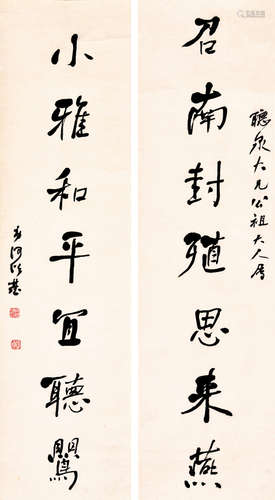 聽泉大兄公祖大人屬
召南封殖思来燕
小雅和平宜聽鸎
弟何紹基